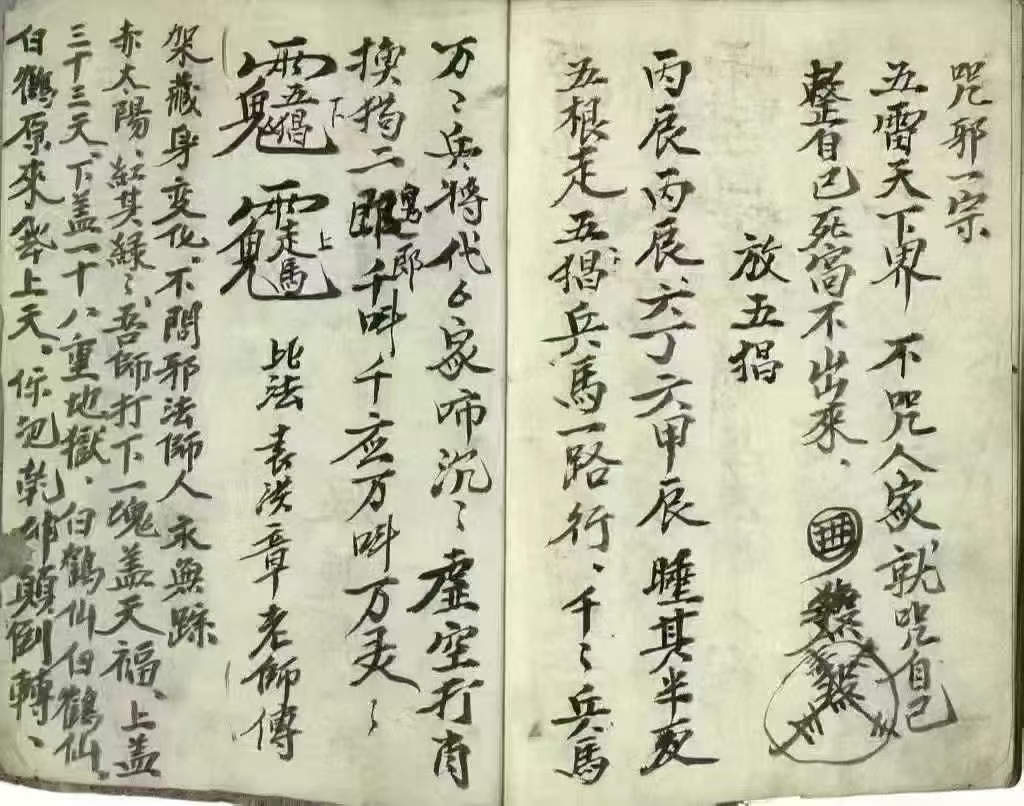 咒邪一宗
五雷天下界 不咒人家就咒自己
整自己死窩不出來、
放五猖
丙辰丙辰、六丁六甲辰 睡其半夜
五根走五猖兵馬一路行、千〻兵馬
万〻兵將代 家 沉〻 虛空打
換猖二郎 千叫千应万叫万灵〻
五猖 下
走馬 上
此法袁洪章老師傳
架藏身变化、不問邪法師人 永無踪
赤太陽、紅其緑〻、吾師打下一塊盖天福、上盖
三十三天、下盖一十八重地獄、白鶴仙白鶴仙、
白鶴原來 上天、你把乾 顛倒轉、